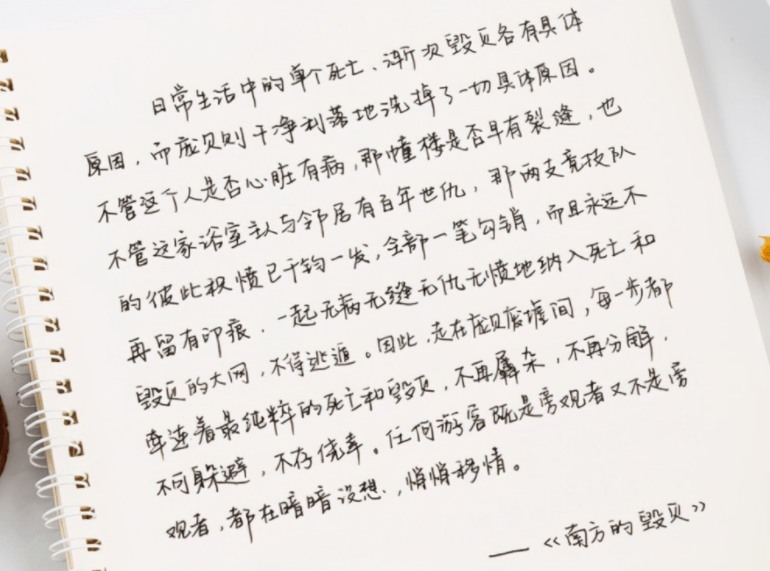 日常生活中的单个死亡、渐次毁灭各有具体
原因，而庞贝则干净利落地洗掉了一切具体原因。
不管这个人是否心脏有病，那幢楼是否早有裂缝，也
不管这家浴室主人与邻居有百年世仇，那两支竞技队
的彼此积愤已千钧一发，全部一笔勾销，而且永远不
再留有印痕、一起无病无缝无仇无愤地纳入死亡和
毁灭的大网，不得逃遁。因此，走在庞贝废墟间，每一步都
牵连着最纯粹的死亡和毁灭，不再羼杂，不再分解，
不可躲避，不存侥幸。任何游客既是旁观者又不是旁
观者，都在暗暗设想，悄悄移情。
——《南方的毁灭》